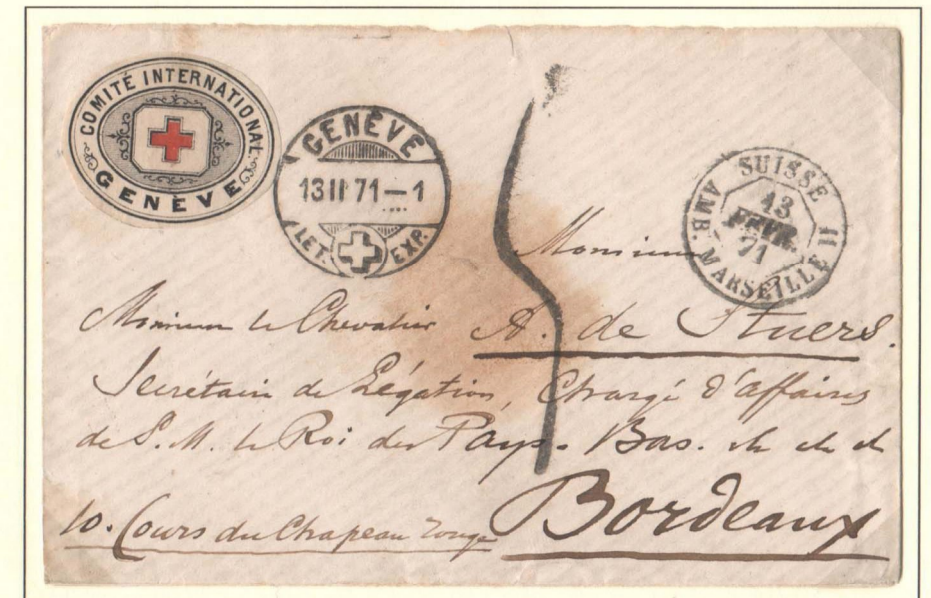 COMITÉ INTERNATIONAL
GENÈVE
GENÈVE
13 II 71 — 1
LET. EXP.
SUISSE 11
13
FEVR.
71
AMB. MARSEILLE
5
Monsieur
Monsieur le Chevalier A. de Stuers.
Secrétaire de Légation, Chargé d'affaires
de S. M. le Roi des Pays-Bas.
10. Cours du Chapeau rouge Bordeaux